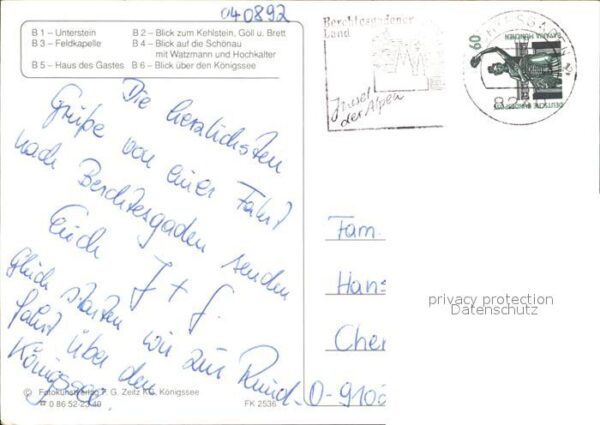 040892
B 1 – Unterstein
B 2 – Blick zum Kehlstein, Göll u. Brett
B 3 – Feldkapelle
B 4 – Blick auf die Schönau
mit Watzmann und Hochkalter
B 5 – Haus des Gastes
B 6 – Blick über den Königssee
Berchtesgadener
Land
Insel
der Alpen
60
BAVARIA MÜNCHEN
DEUTSCHE BUNDESPOST
Die herzlichsten
Grüße von einer Fahrt
nach Berchtesgaden senden
Euch J + G.
gleich starten wir zur Rund-
fahrt über den
Königssee.
Fam.
Hans
Chem
O-9102
privacy protection
Datenschutz
© Fotokunstverlag F. G. Zeitz KG, Königssee
☎ 0 86 52-23 40
FK 2536